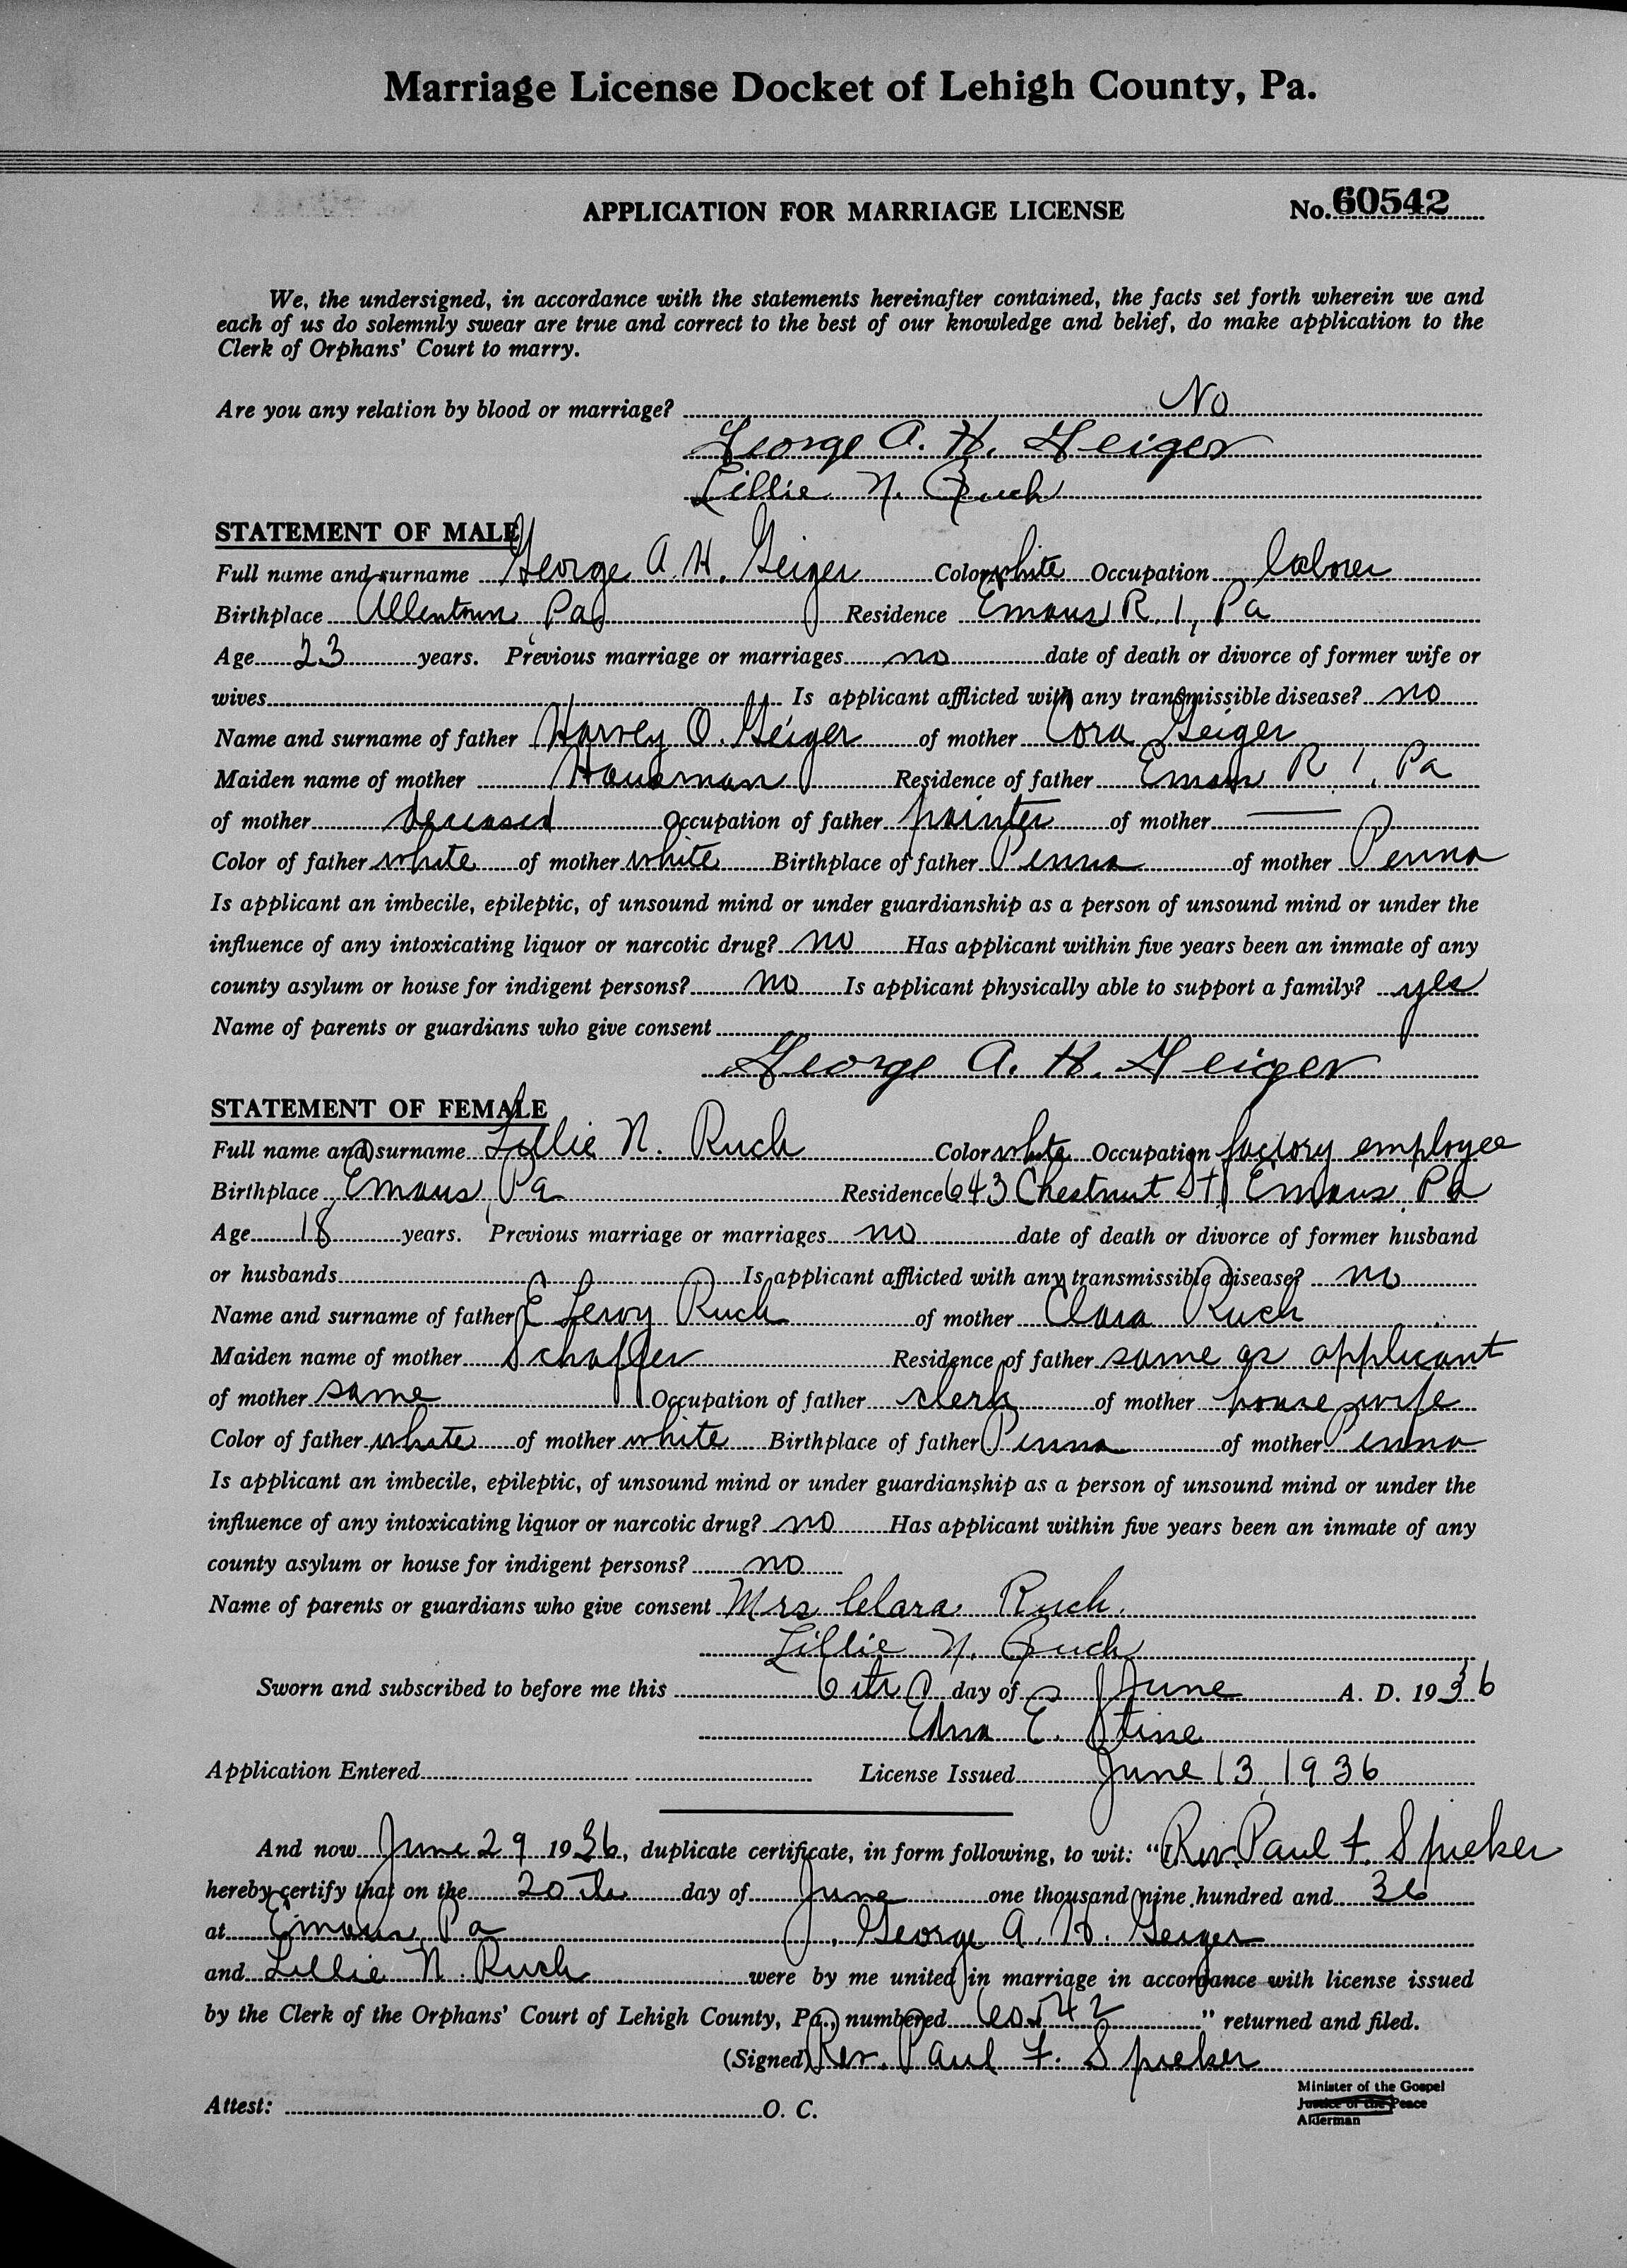 Marriage License Docket of Lehigh County, Pa.
APPLICATION FOR MARRIAGE LICENSE No. 60542
We, the undersigned, in accordance with the statements hereinafter contained, the facts set forth wherein we and
each of us do solemnly swear are true and correct to the best of our knowledge and belief, do make application to the
Clerk of Orphans' Court to marry.
Are you any relation by blood or marriage? No
George A. H. Geiger
Lillie N. Ruch
STATEMENT OF MALE
Full name and surname George A. H. Geiger Color white Occupation laborer
Birthplace Allentown, Pa Residence Emaus R. 1, Pa
Age 23 years. Previous marriage or marriages no date of death or divorce of former wife or
wives Is applicant afflicted with any transmissible disease? no
Name and surname of father Harvey O. Geiger of mother Cora Geiger
Maiden name of mother Residence of father Emaus R 1, Pa
of mother deceased Occupation of father painter of mother —
Color of father white of mother white Birthplace of father Penna of mother Penna
Is applicant an imbecile, epileptic, of unsound mind or under guardianship as a person of unsound mind or under the
influence of any intoxicating liquor or narcotic drug? no Has applicant within five years been an inmate of any
county asylum or house for indigent persons? no Is applicant physically able to support a family? yes
Name of parents or guardians who give consent
George A. H. Geiger
STATEMENT OF FEMALE
Full name and surname Lillie N. Ruch Color white Occupation factory employee
Birthplace Emaus, Pa Residence 643 Chestnut St, Emaus, Pa
Age 18 years. Previous marriage or marriages no date of death or divorce of former husband
or husbands Is applicant afflicted with any transmissible disease? no
Name and surname of father E Leroy Ruch of mother Clara Ruch
Maiden name of mother Schaffer Residence of father same as applicant
of mother same Occupation of father clerk of mother housewife
Color of father white of mother white Birthplace of father Penna of mother Penna
Is applicant an imbecile, epileptic, of unsound mind or under guardianship as a person of unsound mind or under the
influence of any intoxicating liquor or narcotic drug? no Has applicant within five years been an inmate of any
county asylum or house for indigent persons? no
Name of parents or guardians who give consent Mrs Clara Ruch.
Lillie N. Ruch
Sworn and subscribed to before me this 6th day of June A. D. 1936
Edna E. Stine
Application Entered License Issued June 13, 1936
And now June 29 1936, duplicate certificate, in form following, to wit: "I, Rev. Paul F. Spieker
hereby certify that on the 20th day of June one thousand nine hundred and 36
at Emaus, Pa , George A. H. Geiger
and Lillie N. Ruch were by me united in marriage in accordance with license issued
by the Clerk of the Orphans' Court of Lehigh County, Pa., numbered 60542 " returned and filed.
(Signed) Rev. Paul F. Spieker
Minister of the Gospel
Justice of the Peace
Alderman
Attest: O. C.